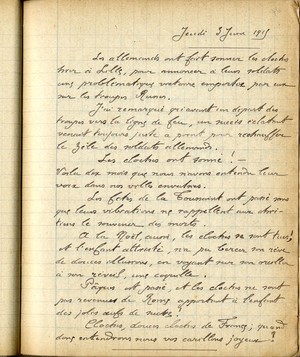 Jeudi 3 Juin 1915
Les allemands ont fait sonner les cloches
hier à Lille, pour annoncer à leurs soldats
une problématique victoire remportée par eux
sur les troupes Russes.
J'ai remarqué qu'avant un départ des
troupes vers la ligne de feu, un succès éclatant
venait toujours juste à point pour réchauffer
le zèle des soldats allemands.
Les cloches ont sonné ! —
Voilà des mois que nous n'avons entendu leur
voix dans nos villes envahies.
Les fêtes de la Toussaint ont passé sans
que leurs vibrations ne rappellent aux
le souvenir des morts.
A la Noël, aussi, les cloches se sont tues,
et l'enfant attristé, n'a pu bercer son rêve
de douces illusions, en voyant sur son oreiller
à son réveil, une coquille.
Pâques ont passé, et les cloches ne sont
pas revenues de Rome apportant à l'enfant
des jolis œufs de sucre !
Cloches, douces cloches de France, quand
donc entendrons nous vos carillons joyeux !